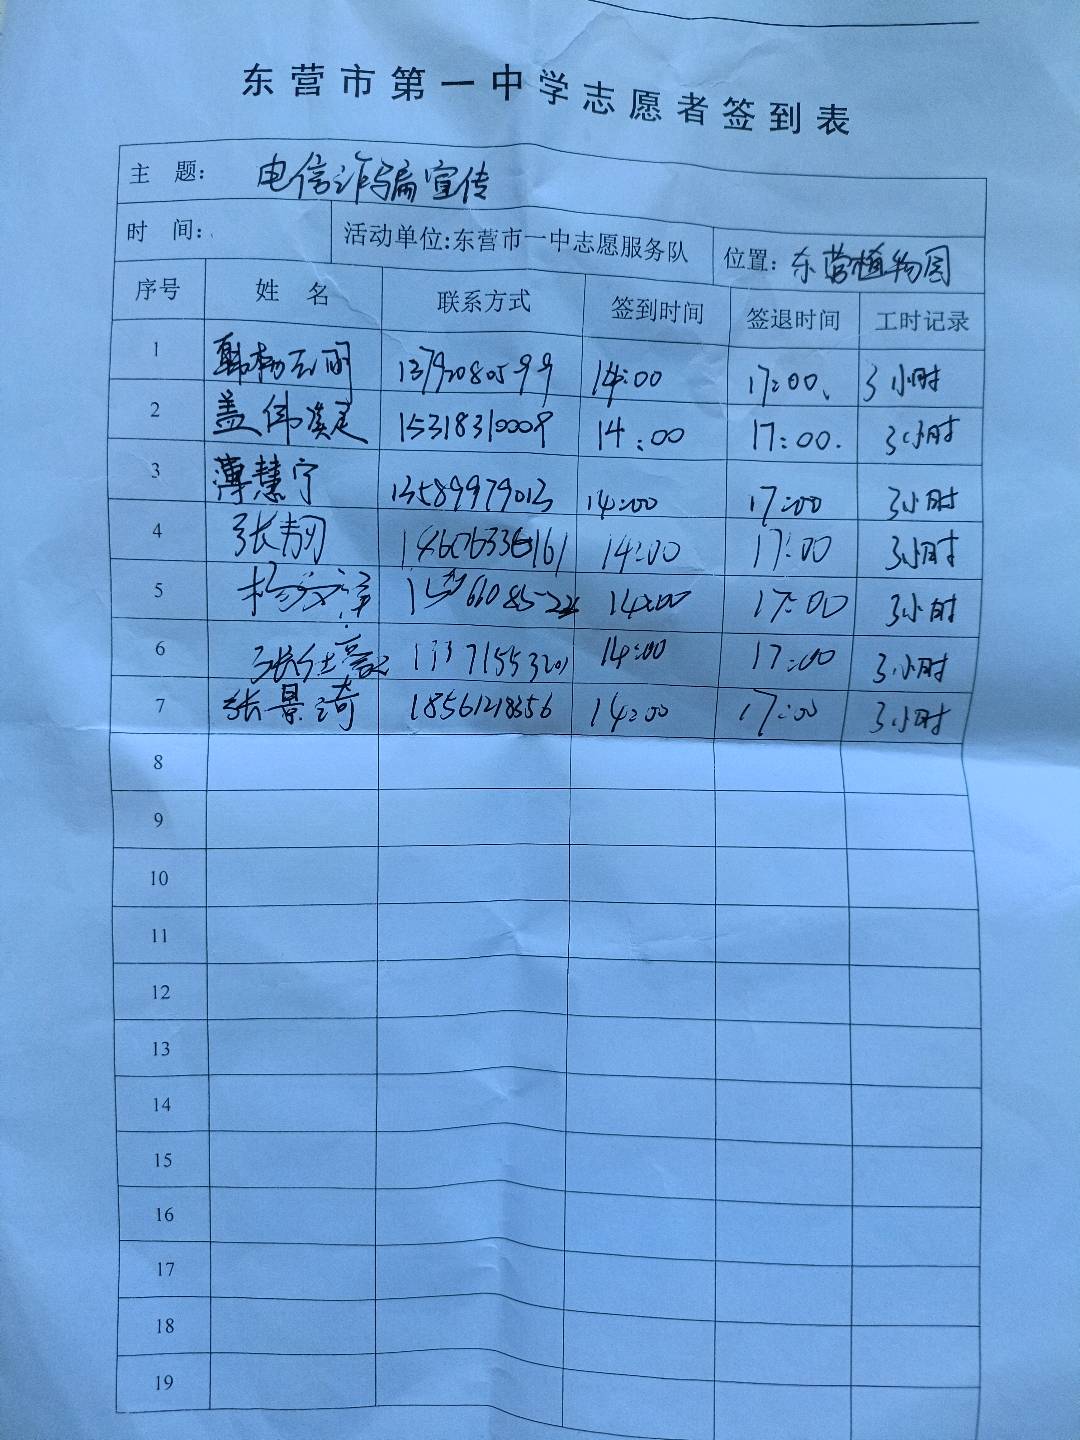 东营市第一中学志愿者签到表
主 题： 电信诈骗宣传
时 间： 活动单位:东营市一中志愿服务队 位置：东营植物园
序号 姓 名 联系方式 签到时间 签退时间 工时记录
1 13792080599 14:00 17:00、 3小时
2 盖伟 15318310009 14:00 17:00. 3小时
3 薄慧宁 13589979013 14:00 17:00 3小时
4 张韧 14:00 17:00 3小时
5 14:00 17:00 3小时
6 张仕豪 13371553201 14:00 17:00 3小时
7 张景琦 18561218356 14:00 17:00 3小时
8
9
10
11
12
13
14
15
16
17
18
19